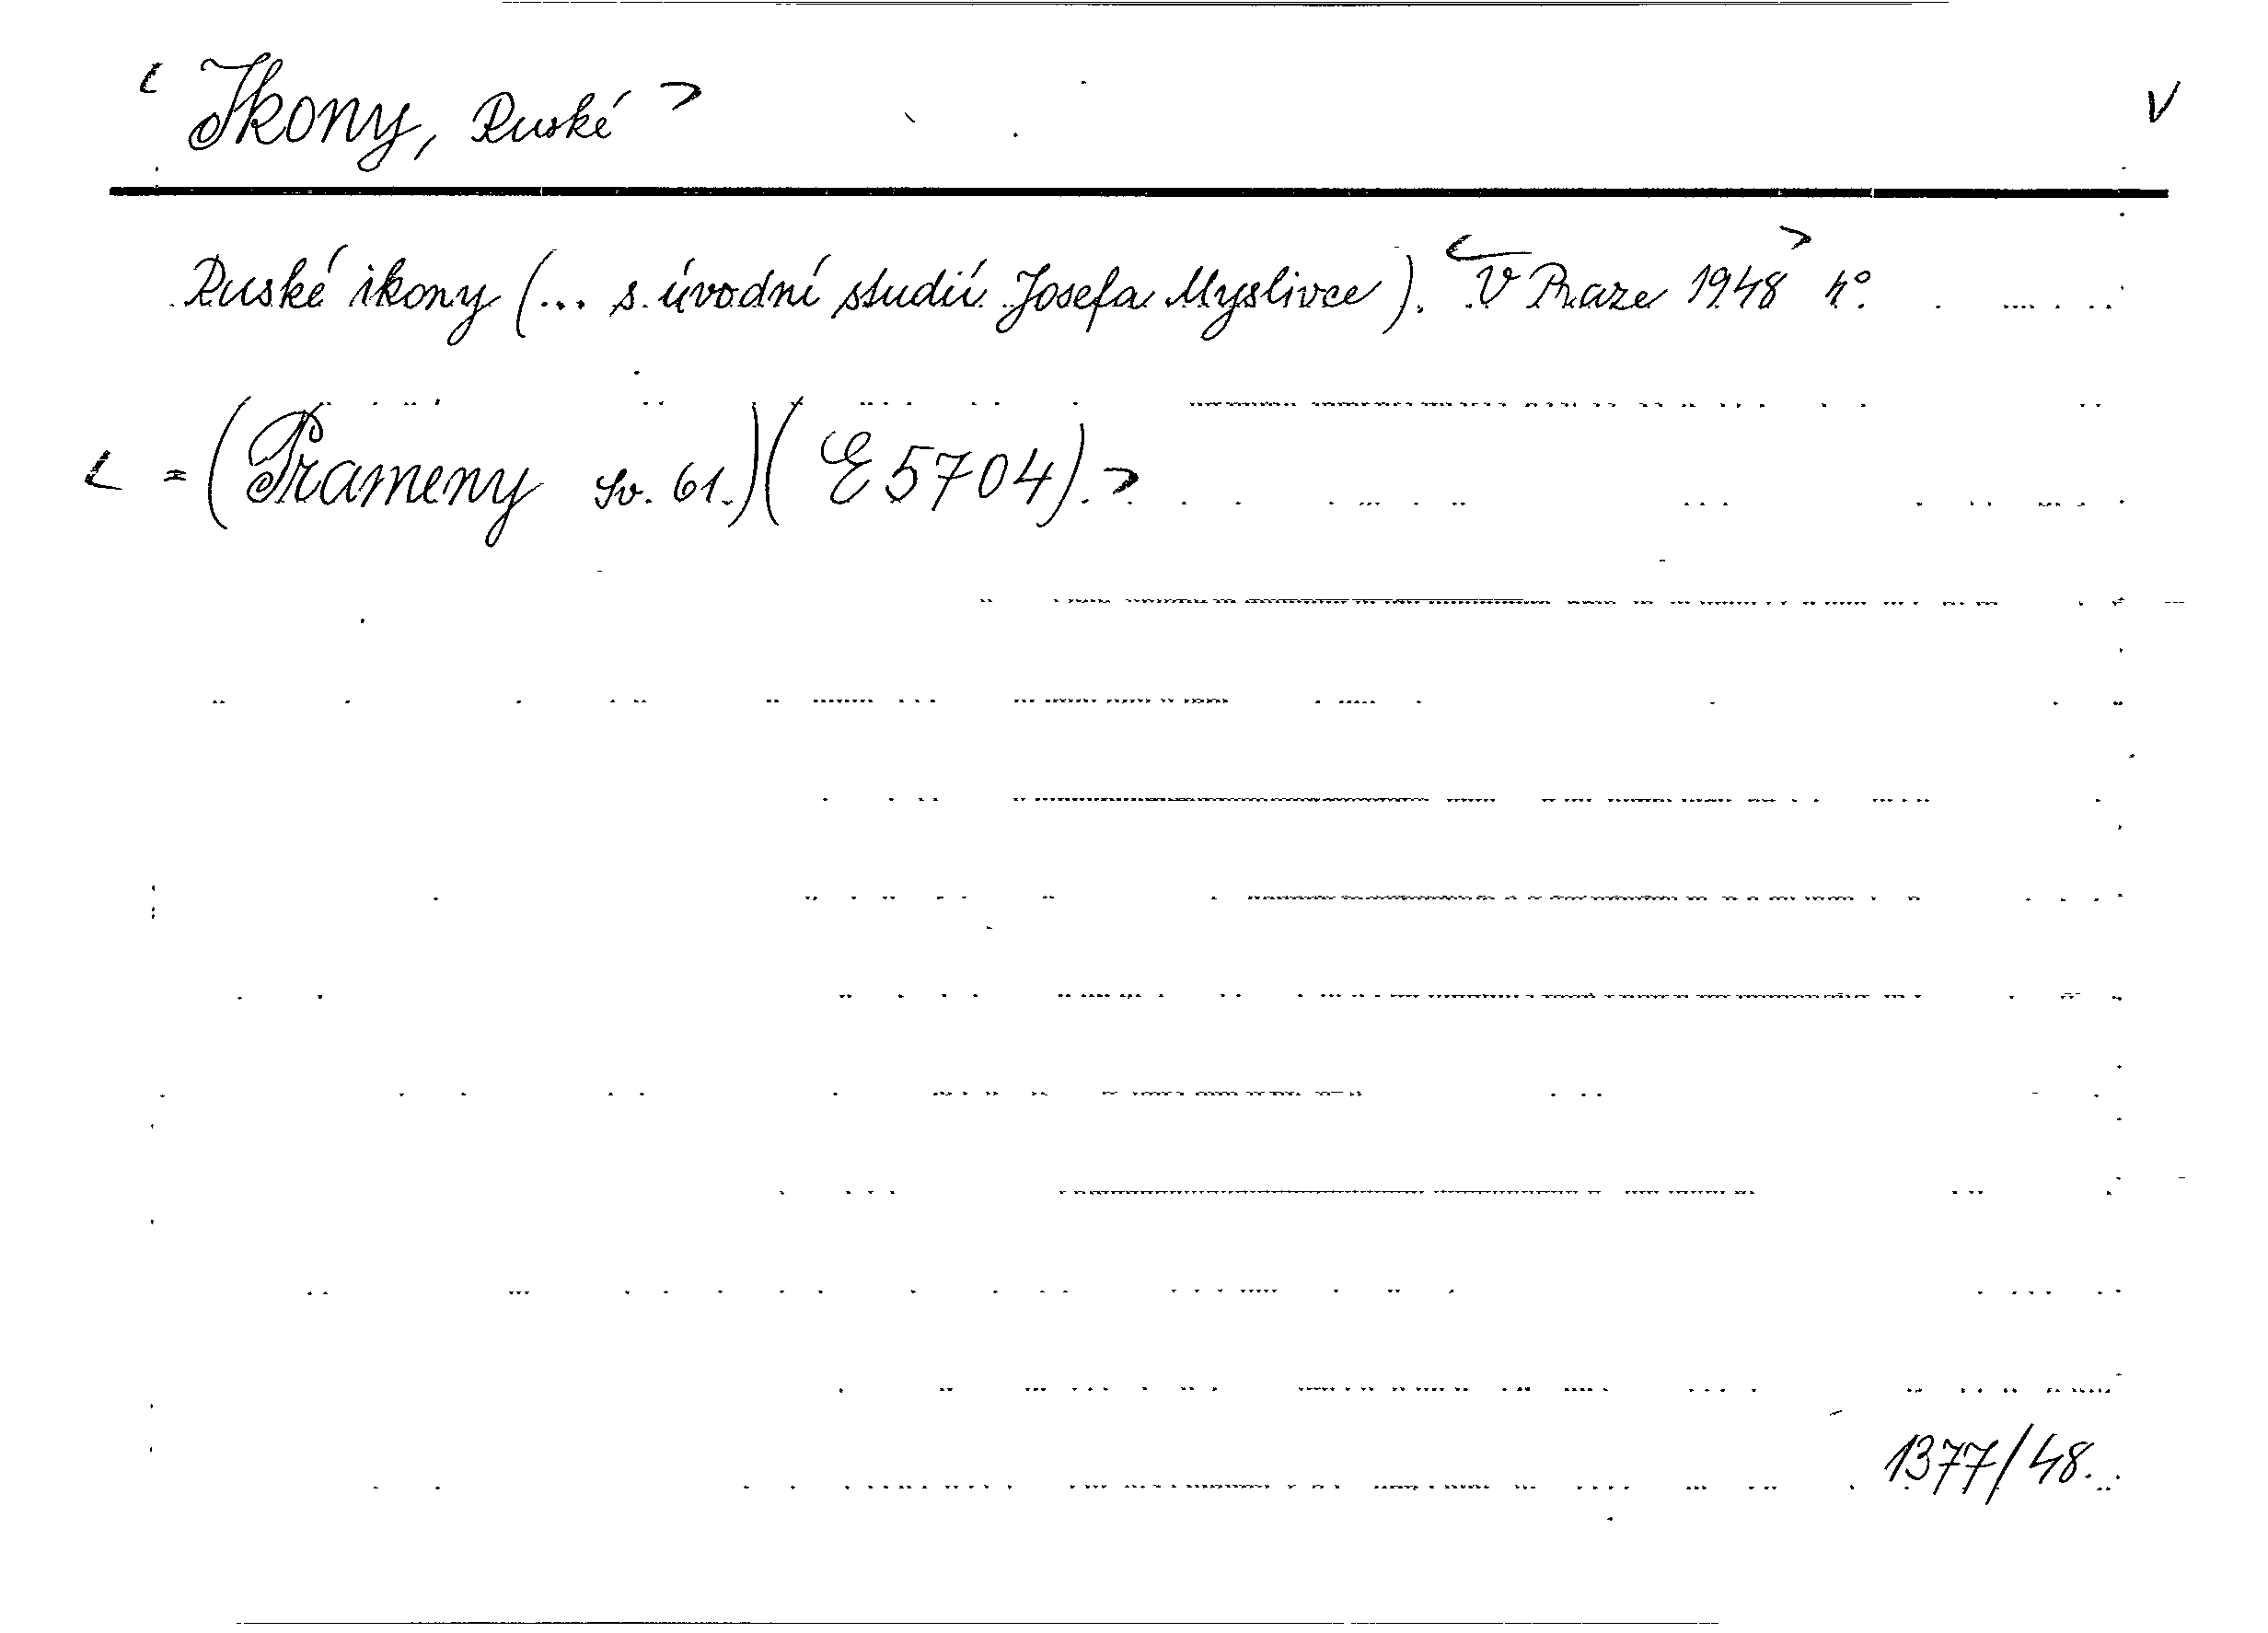 < Ikony, Ruské > V
Ruské ikony (... s úvodní studií Josefa Myslivce). < V Praze 1948 > 4°.
< = (Prameny sv. 61.) (E 5704). >
1377/48.